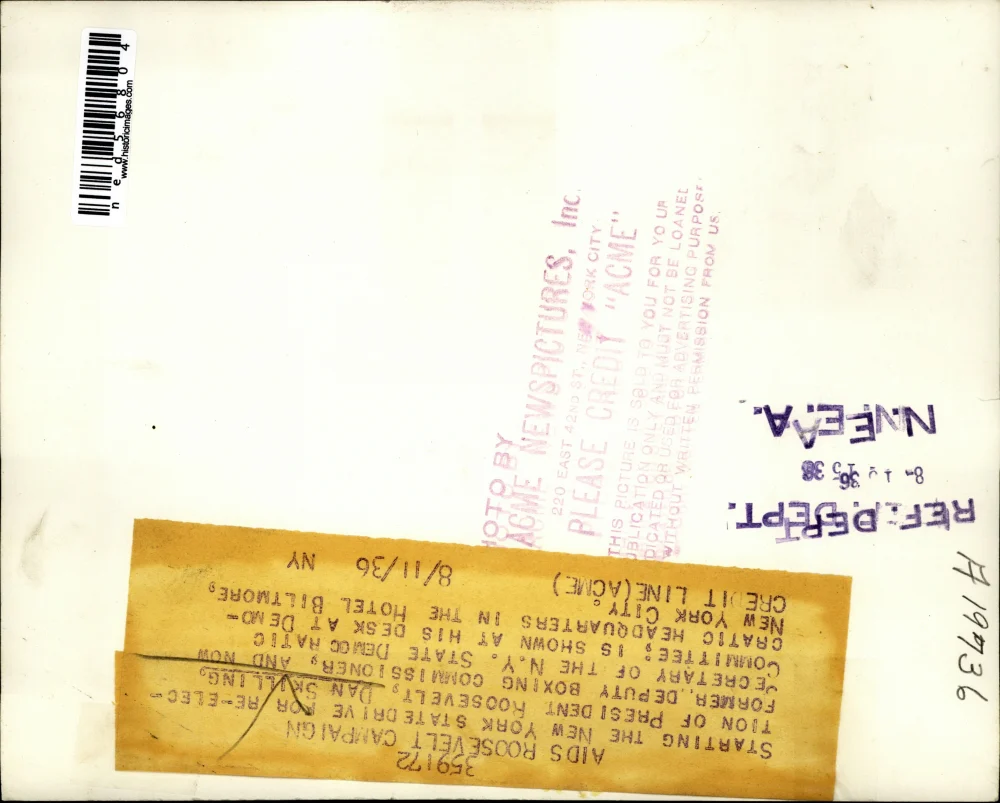 ned56804
www.historicimages.com
HOTO BY
ACME NEWSPICTURES, Inc.
220 EAST 42ND ST., NEW YORK CITY.
PLEASE CREDIT "ACME"
THIS PICTURE IS SOLD TO YOU FOR YOUR
UBLICATION ONLY AND MUST NOT BE LOANED
DICATED OR USED FOR ADVERTISING PURPOSE
WITHOUT WRITTEN PERMISSION FROM US.
N.E.A.
REF. DEPT.
H 19736
359172
AIDS ROOSEVELT CAMPAIGN
STARTING THE NEW YORK STATE DRIVE FOR RE-ELEC-
TION OF PRESIDENT ROOSEVELT, DAN SKILLING,
FORMER DEPUTY BOXING COMMISSIONER, AND NOW
SECRETARY OF THE N.Y. STATE DEMOCRATIC
COMMITTEE; IS SHOWN AT HIS DESK AT DEMO-
CRATIC HEADQUARTERS IN THE HOTEL BILTMORE,
NEW YORK CITY.
CREDIT LINE(ACME) 8/11/36 NY